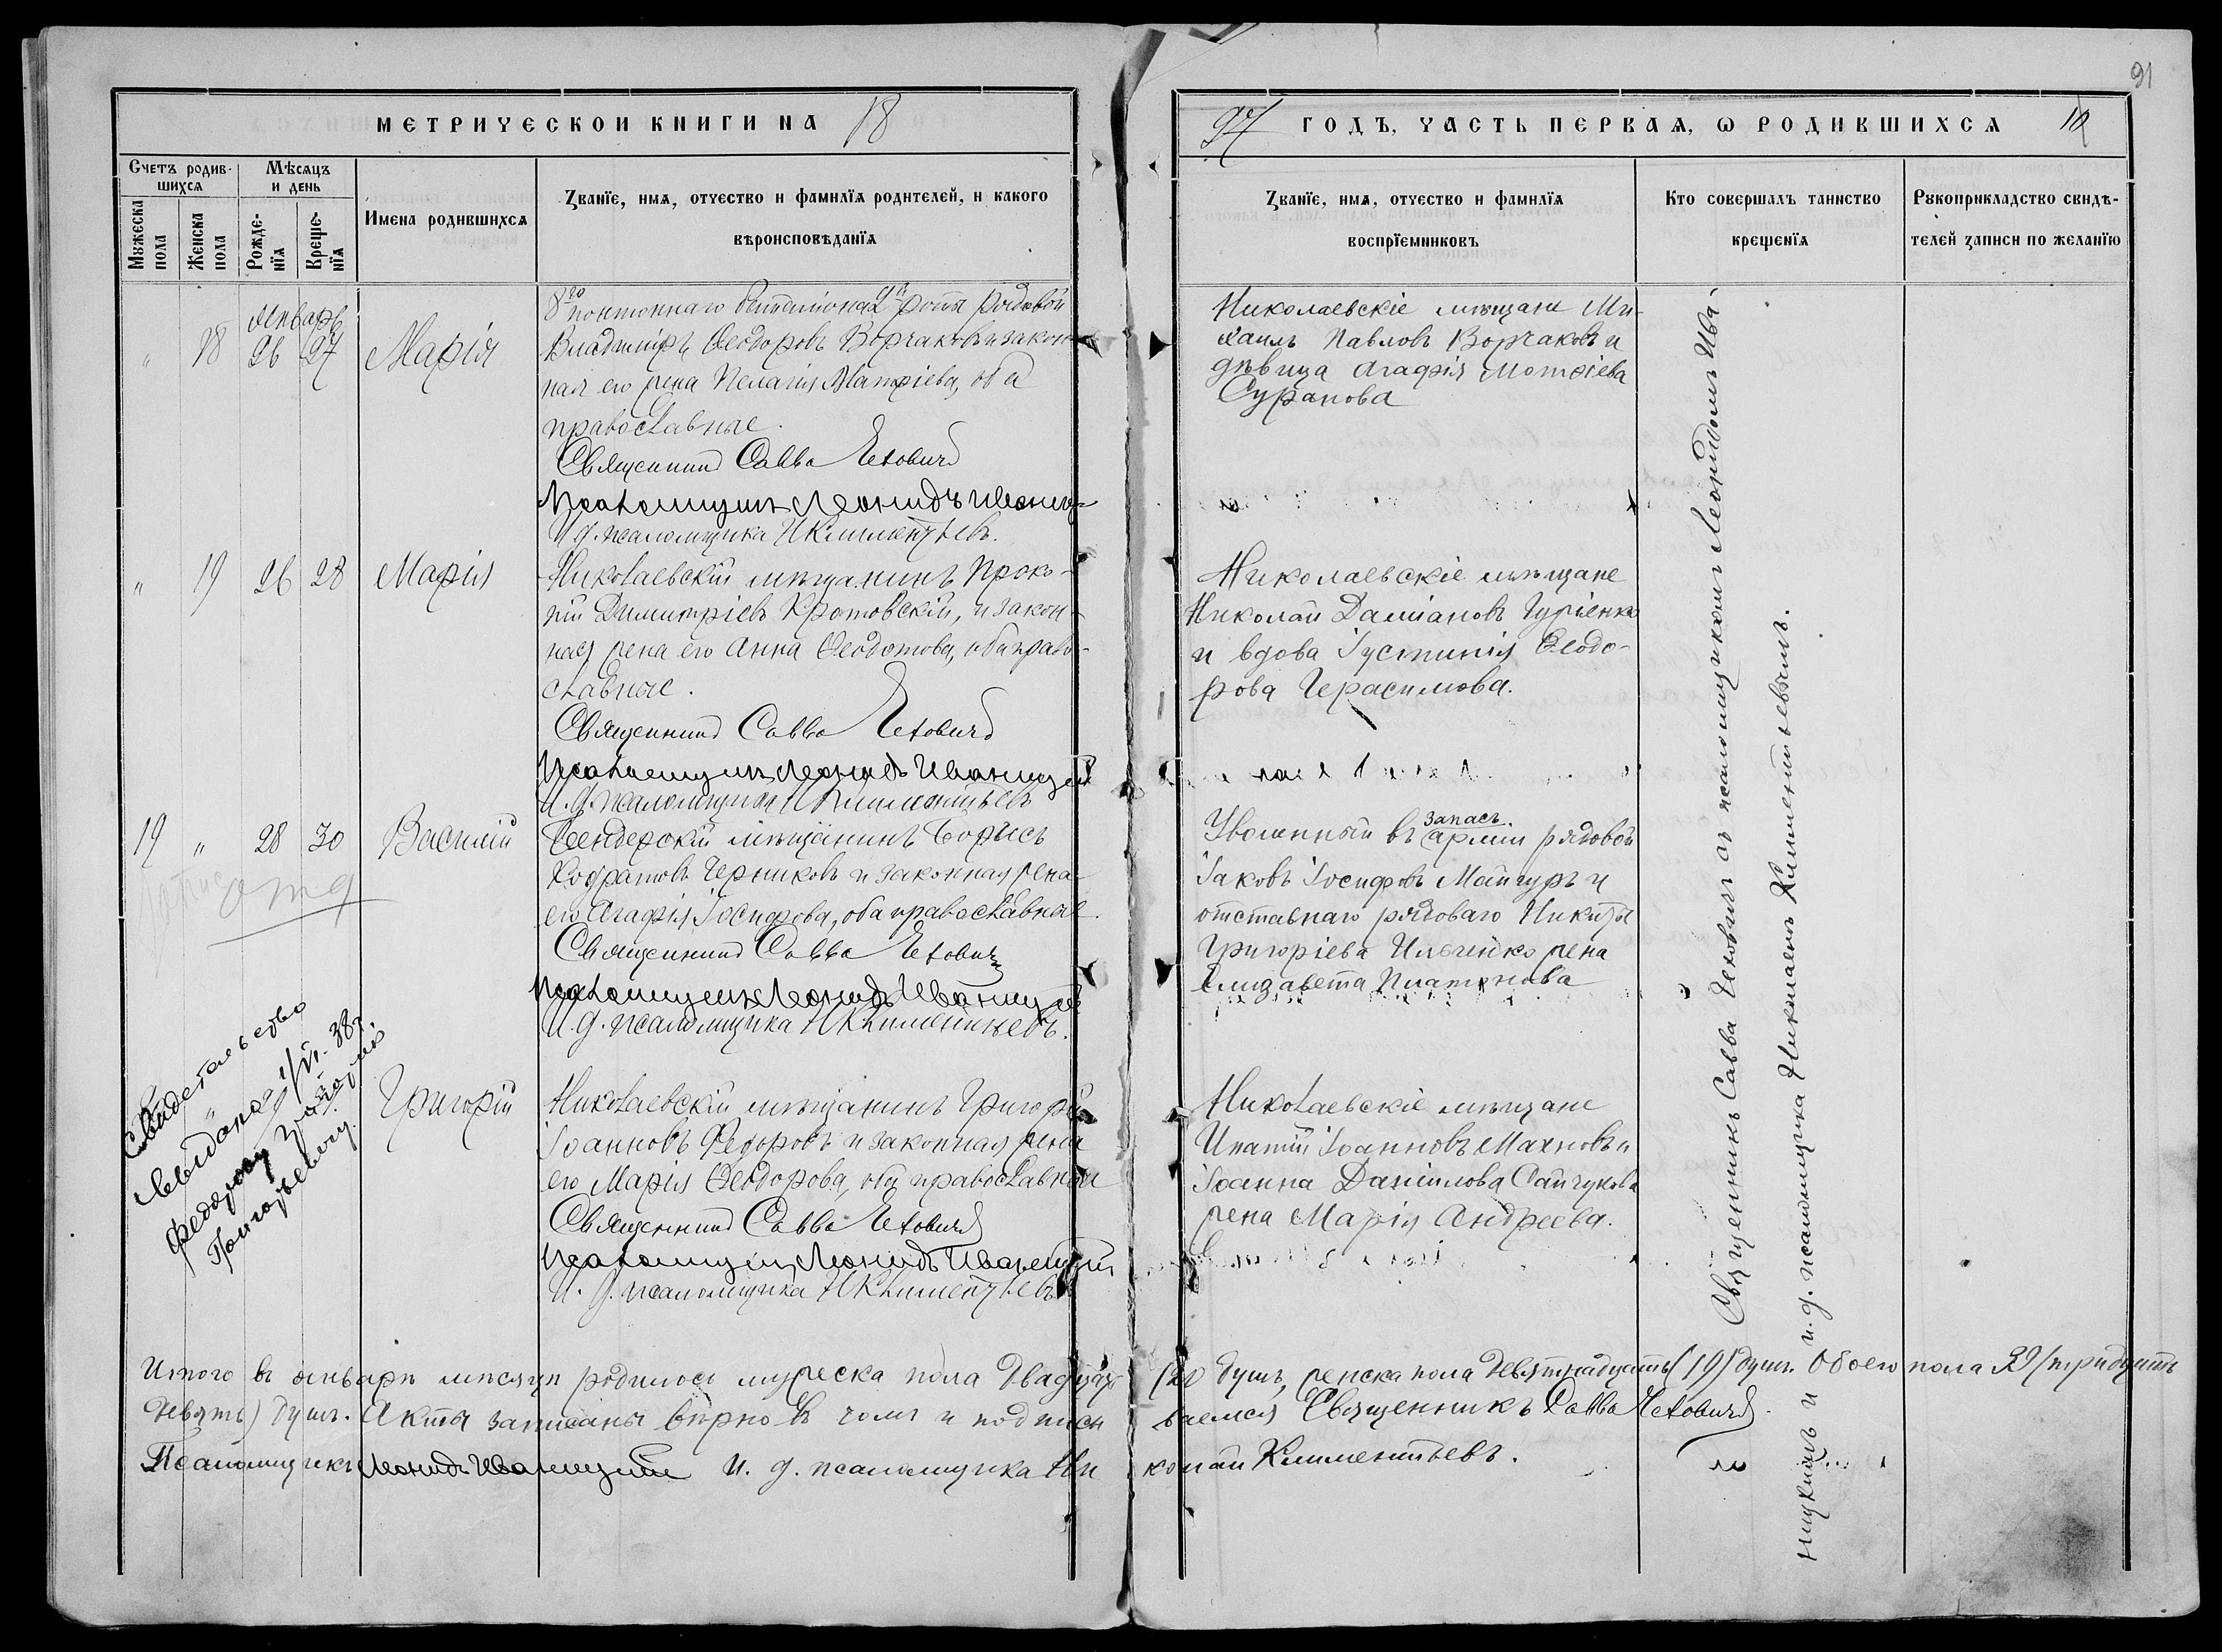 91
МЕТРИЧЕСКОЙ КНИГИ НА 18
97 ГОДЪ, ЧАСТЬ ПЕРВАЯ, Ѡ РОДИВШИХСЯ
Счетъ родив-
шихся
Мѣсяцъ
и день
Мꙋжеска
пола
Женска
пола
Рожде-
нїя
Креще-
нїя
Имена родившихся
Званїе, имя, отчество и фамилїя родителей, и какого
вѣроисповѣданїя
Званїе, имя, отчество и фамилїя
воспрїемниковъ
Кто совершалъ таинство
крещенїя
Рꙋкоприкладство свидѣ-
телей записи по желанїю
Январь
" 18 26 27 Марія
8го понтоннаго баталіона 2й роты рядовой
Владиміръ Ѳеодоровъ Ворчаковъ и закон-
ная его жена Пелагія Матѳіева, оба
православные.
Священникъ Савва Чехович
Псаломщикъ Леонидъ Иваниц-
И. д. псаломщика Н Климентьевъ.
Николаевскіе мѣщане Ми-
хаилъ Павловъ Ворчаковъ и
дѣвица Агафія Матѳіева
Суранова
" 19 26 28 Марія
Николаевскій мѣщанинъ Проко-
пій Димитріевъ Кротовскій, и закон-
ная жена его Анна Ѳеодотова, оба право-
славные.
Священникъ Савва Чехович
Псаломщикъ Леонидъ Иваницкій
И. д. псаломщика Н Климентьевъ
Николаевскіе мѣщане
Николай Даміановъ Гуріенко
и вдова Іустинія Ѳеодо-
рова Герасимова.
19 " 28 30 Василій
Бендерскій мѣщанинъ Борисъ
Кодратовъ Черниковъ и законная жена
его Агафія Іосифова, оба православные.
Священникъ Савва Чехович
Псаломщикъ Леонидъ Иваницкій
И. д. псаломщика Н Климентьевъ.
Уволенный въ запасъ арміи рядовой
Іаковъ Іосифовъ Майгуръ и
отставнаго рядоваго Никиты
Григоріева Ильченко жена
Елизавета Платонова
Свидетельство
выдано 1/VI-38г.
Федорову Григорию
Григорьевичу.
Григорій
Николаевскій мѣщанинъ Григорій
Іоанновъ Федоровъ и законная жена
его Марія Ѳеодорова, оба православные
Священникъ Савва Чехович
Псаломщикъ Леонидъ Иваницкій
И. д. псаломщика Н Климентьевъ
Николаевскіе мѣщане
Ипатій Іоанновъ Махновъ и
Іоанна Даніилова Сайчукова
жена Марія Андреева.
Священникъ Савва Чеховичъ съ псаломщикомъ Леонидомъ Ива-
ницкимъ и и. д. псаломщика Николаемъ Климентьевымъ.
Итого въ январѣ мѣсяцѣ родилось мужеска пола двадцать (20) душъ, женска пола девятнадцать (19) душъ. Обоего пола 39 (тридцать
девять) душъ. Акты записаны вѣрно въ чомъ и подписываемся Священникъ Савва Чехович.
Псаломщикъ Леонидъ Иваницкій И. д. псаломщика Николай Климентьевъ.